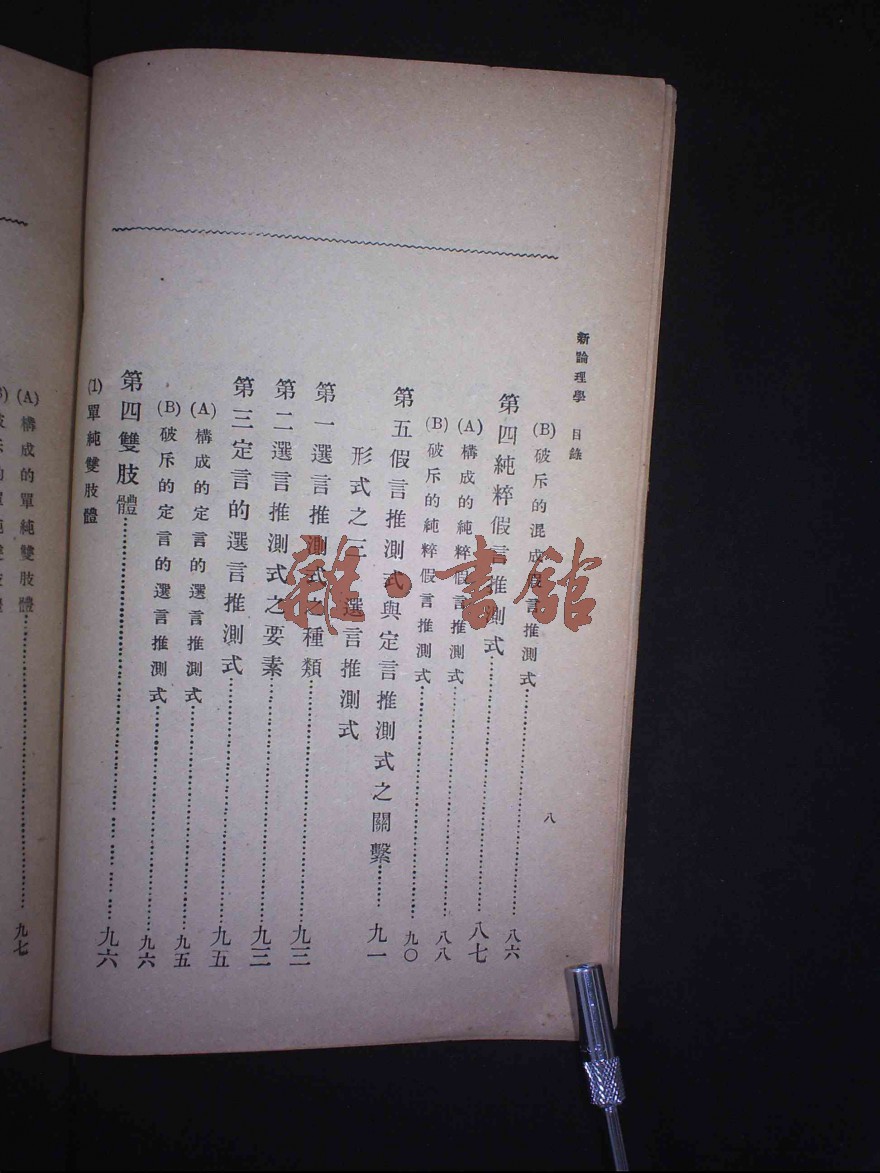 新論理學 目錄
八
(B) 破斥的混成假言推測式……八六
第四純粹假言推測式……八七
(A) 構成的純粹假言推測式……八八
(B) 破斥的純粹假言推測式……九〇
第五假言推測式與定言推測式之關繫……九一
形式之三 選言推測式
第一選言推測式之種類……九三
第二選言推測式之要素……九三
第三定言的選言推測式……九五
(A) 構成的定言的選言推測式……九五
(B) 破斥的定言的選言推測式……九六
第四雙肢體……九六
(1) 單純雙肢體
(A) 構成的單純雙肢體……九七
雜·書館